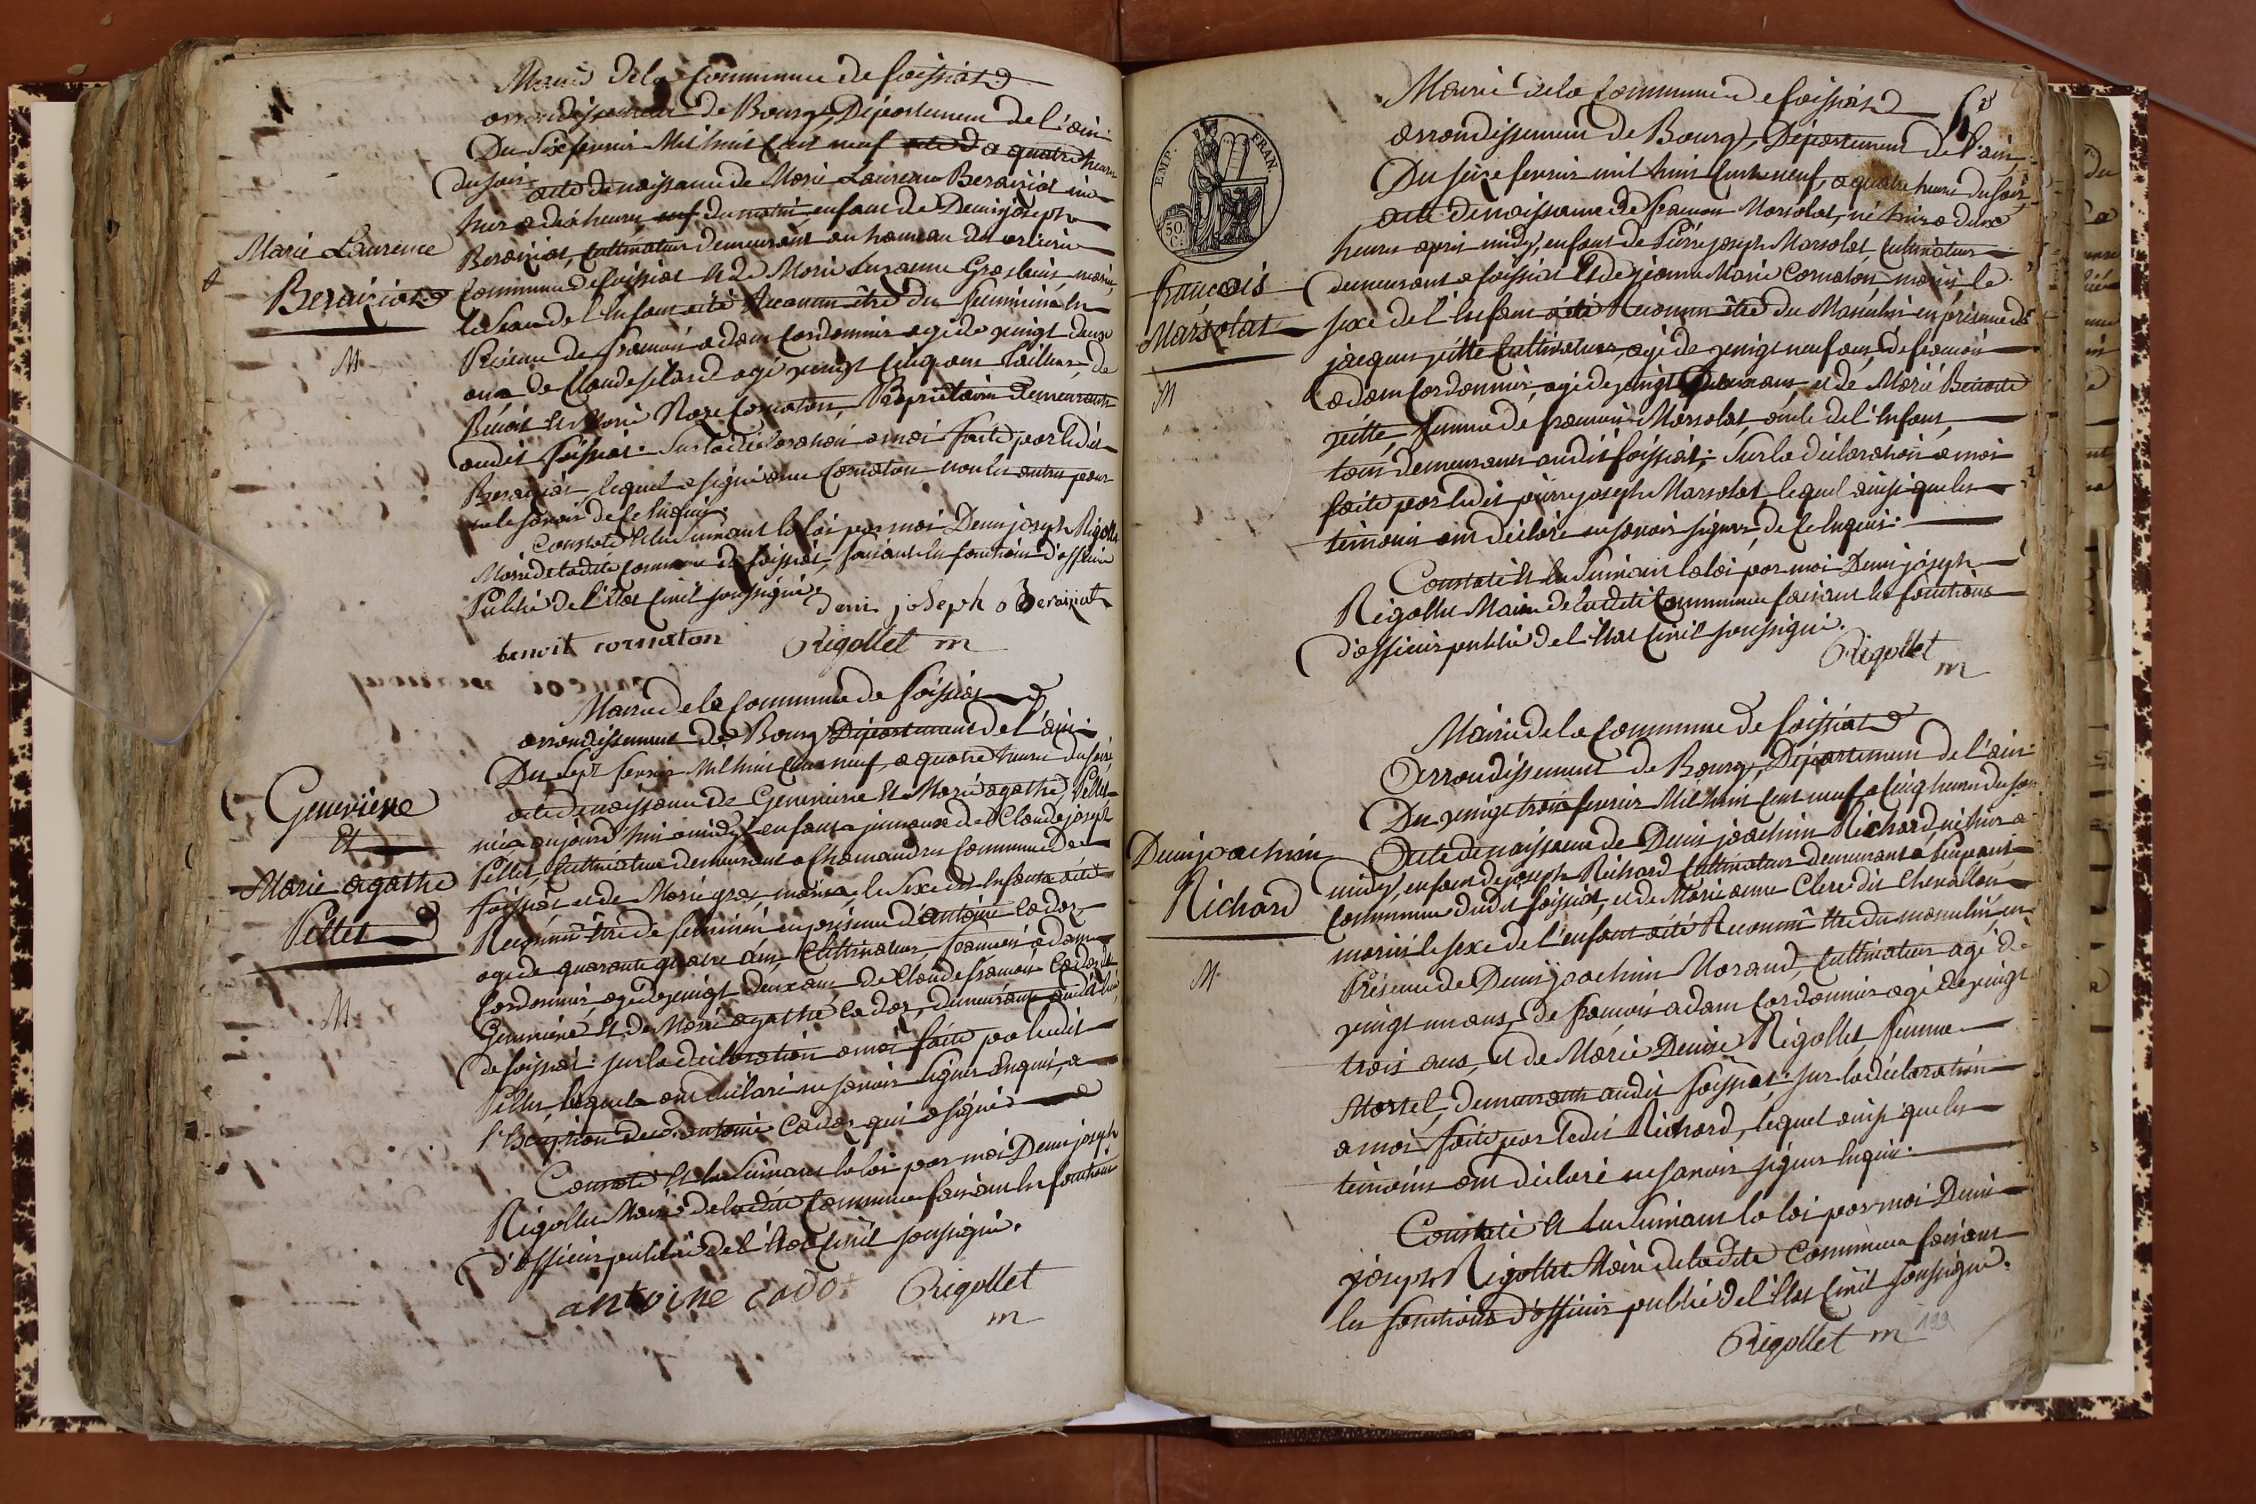 Mairie de la Commune de foissiat
arrondissement de Bourg, Département de l'ain
Du Six fevrier Mil huit Cent neuf a quatre heures
du soir
acte de naissance de Marie Laurence Beraiziat née
hier a dix heures du matin enfant de Denis joseph
Marie Laurence
Beraiziat
Beraiziat, Cultivateur demeurant au hameau du
Commune de foissiat et de Marie Suzanne Grosbuis mariés
le Sexe de l'Enfant a été Reconnu être du feminin en
Présence de françois adam Cordonnier agé de vingt deux
ans de Claude agé vingt Cinq ans tailleur, de
M
Benoit et Marie Rose Cornaton, Propriétaire demeurants
audit foissiat. Sur la déclaration a moi faite par ledit
Beraiziat, lequel a signé avec Cornaton non les autres pour
ne le savoir de ce Enquis.
Constaté et lu Suivant la loi par moi Denis joseph Rigollet
Maire de ladite Commune de foissiat, faisant les fonctions d'officier
Public de l'état Civil soussigné.
denis joseph Beraiziat
benoit cornaton Rigollet m
Mairie de la Commune de foissiat
arrondissement de Bourg Département de l'ain
Du Sept fevrier Mil huit Cent neuf, a quatre heures du soir
acte de naissance de Genevieve Et Marie agathe Pellet
Genevieve
Et
Marie agathe
Pellet
nées aujourd'hui a midy, enfans jumeaux de Claude joseph
Pellet, Cultivateur demeurant a Chamandre Commune de
foissiat et de Marie gros, mariés, le Sexe des Enfans a été
Reconnu être de feminin en présence d'antoine Cadoz
agé de quarante quatre ans, Cultivateur, françois adam
Cordonnier, agé de vingt deux ans de Claude françois Cadoz
M
Genevieve Et de Marie agathe Cadoz, demeurants audit lieu
de foissiat. sur la déclaration a moi faite par ledit
Pellet, lesquels ont déclaré ne savoir Signer Enquis, a
l'Exception de antoine Cadoz qui a signé
Constaté Et lu Suivant la loi par moi Denis joseph
Rigollet Maire de ladite Commune faisant les fonctions
d'officier public de l'état Civil soussigné.
antoine cadot Rigollet
m
EMP. FRAN.
50 C.
Mairie de la Commune de foissiat
arrondissement de Bourg, Département de l'ain
Du seize fevrier mil huit Cent neuf, a quatre heures du soir
acte de naissance de françois Marsolat, né hier a deux
heures après midy, enfant de Pierre joseph Marsolat, Cultivateur
françois
Marsolat
M
demeurant a foissiat Et de jeanne Marie Cornaton, mariés, le
sexe de l'Enfant a été Reconnu être du Masculin en présence de
jacques pitte Cultivateur, agé de vingt neuf ans, de françois
adam Cordonnier, agé de vingt deux ans, et de Marie Benoite
pitte, femme de françois Marsolat, oncle de l'Enfant,
tous demeurants audit foissiat; Sur la déclaration a moi
faite par ledit pierre joseph Marsolat, lequel ainsi que les
temoins ont déclaré ne savoir signer, de ce Enquis.
Constaté Et lu Suivant la loi par moi Denis joseph
Rigollet Maire de ladite Commune faisant les fonctions
d'officier public de l'état Civil soussigné.
Rigollet
m
Mairie de la Commune de foissiat
Arrondissement de Bourg, Département de l'ain
Du vingt trois fevrier Mil huit Cent neuf a Cinq heures du soir
Denis joachim
Richard
M
Acte de naissance de Denis joachim Richard, né hier a
midy, enfant de joseph Richard Cultivateur demeurant a
Commune dudit foissiat, et de Marie anne Clerc dit Chevallon
mariés le sexe de l'enfant a été Reconnu être du masculin, en
Présence de Denis joachim Morand, Cultivateur agé de
vingt un ans, de françois adam Cordonnier agé de vingt
trois ans, et de Marie Denise Rigollet femme
Martel, demeurants audit foissiat. sur la déclaration
a moi faite par ledit Richard, lequel ainsi que les
témoins ont déclaré ne savoir signer Enquis.
Constaté Et lu Suivant la loi par moi Denis
joseph Rigollet Maire de ladite Commune faisant
les fonctions d'officier public de l'état Civil soussigné.
Rigollet m
199